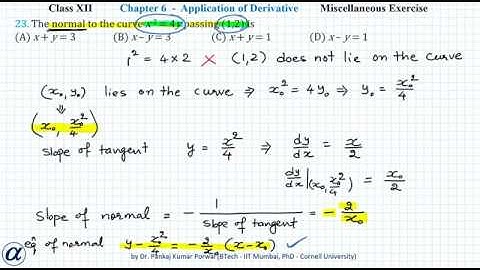 Class XII Chapter 6 - Application of Derivative Miscellaneous Exercise
23. The normal to the curve x² = 4y passing (1,2) is
(A) x + y = 3 (B) x – y = 3 (C) x + y = 1 (D) x – y = 1
1² = 4 × 2 × (1,2) does not lie on the curve
(x₀, y₀) lies on the curve ⇒ x₀² = 4y₀ ⇒ y₀ = x₀²/4
⇓
(x₀, x₀²/4)
slope of tangent y = x²/4 ⇒ dy/dx = x/2
dy/dx|(x₀, x₀²/4) = x₀/2
Slope of normal = - 1/slope of tangent = - 2/x₀
eqⁿ of normal y - x₀²/4 = - 2/x₀ (x - x₀) ✓
α
by Dr. Pankaj Kumar Porwal (BTech - IIT Mumbai, PhD - Cornell University)